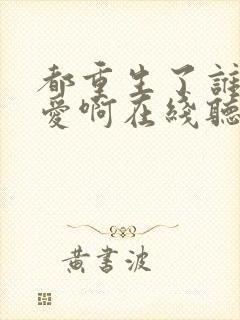 都重生了誰
愛啊在綫聽
黃書波